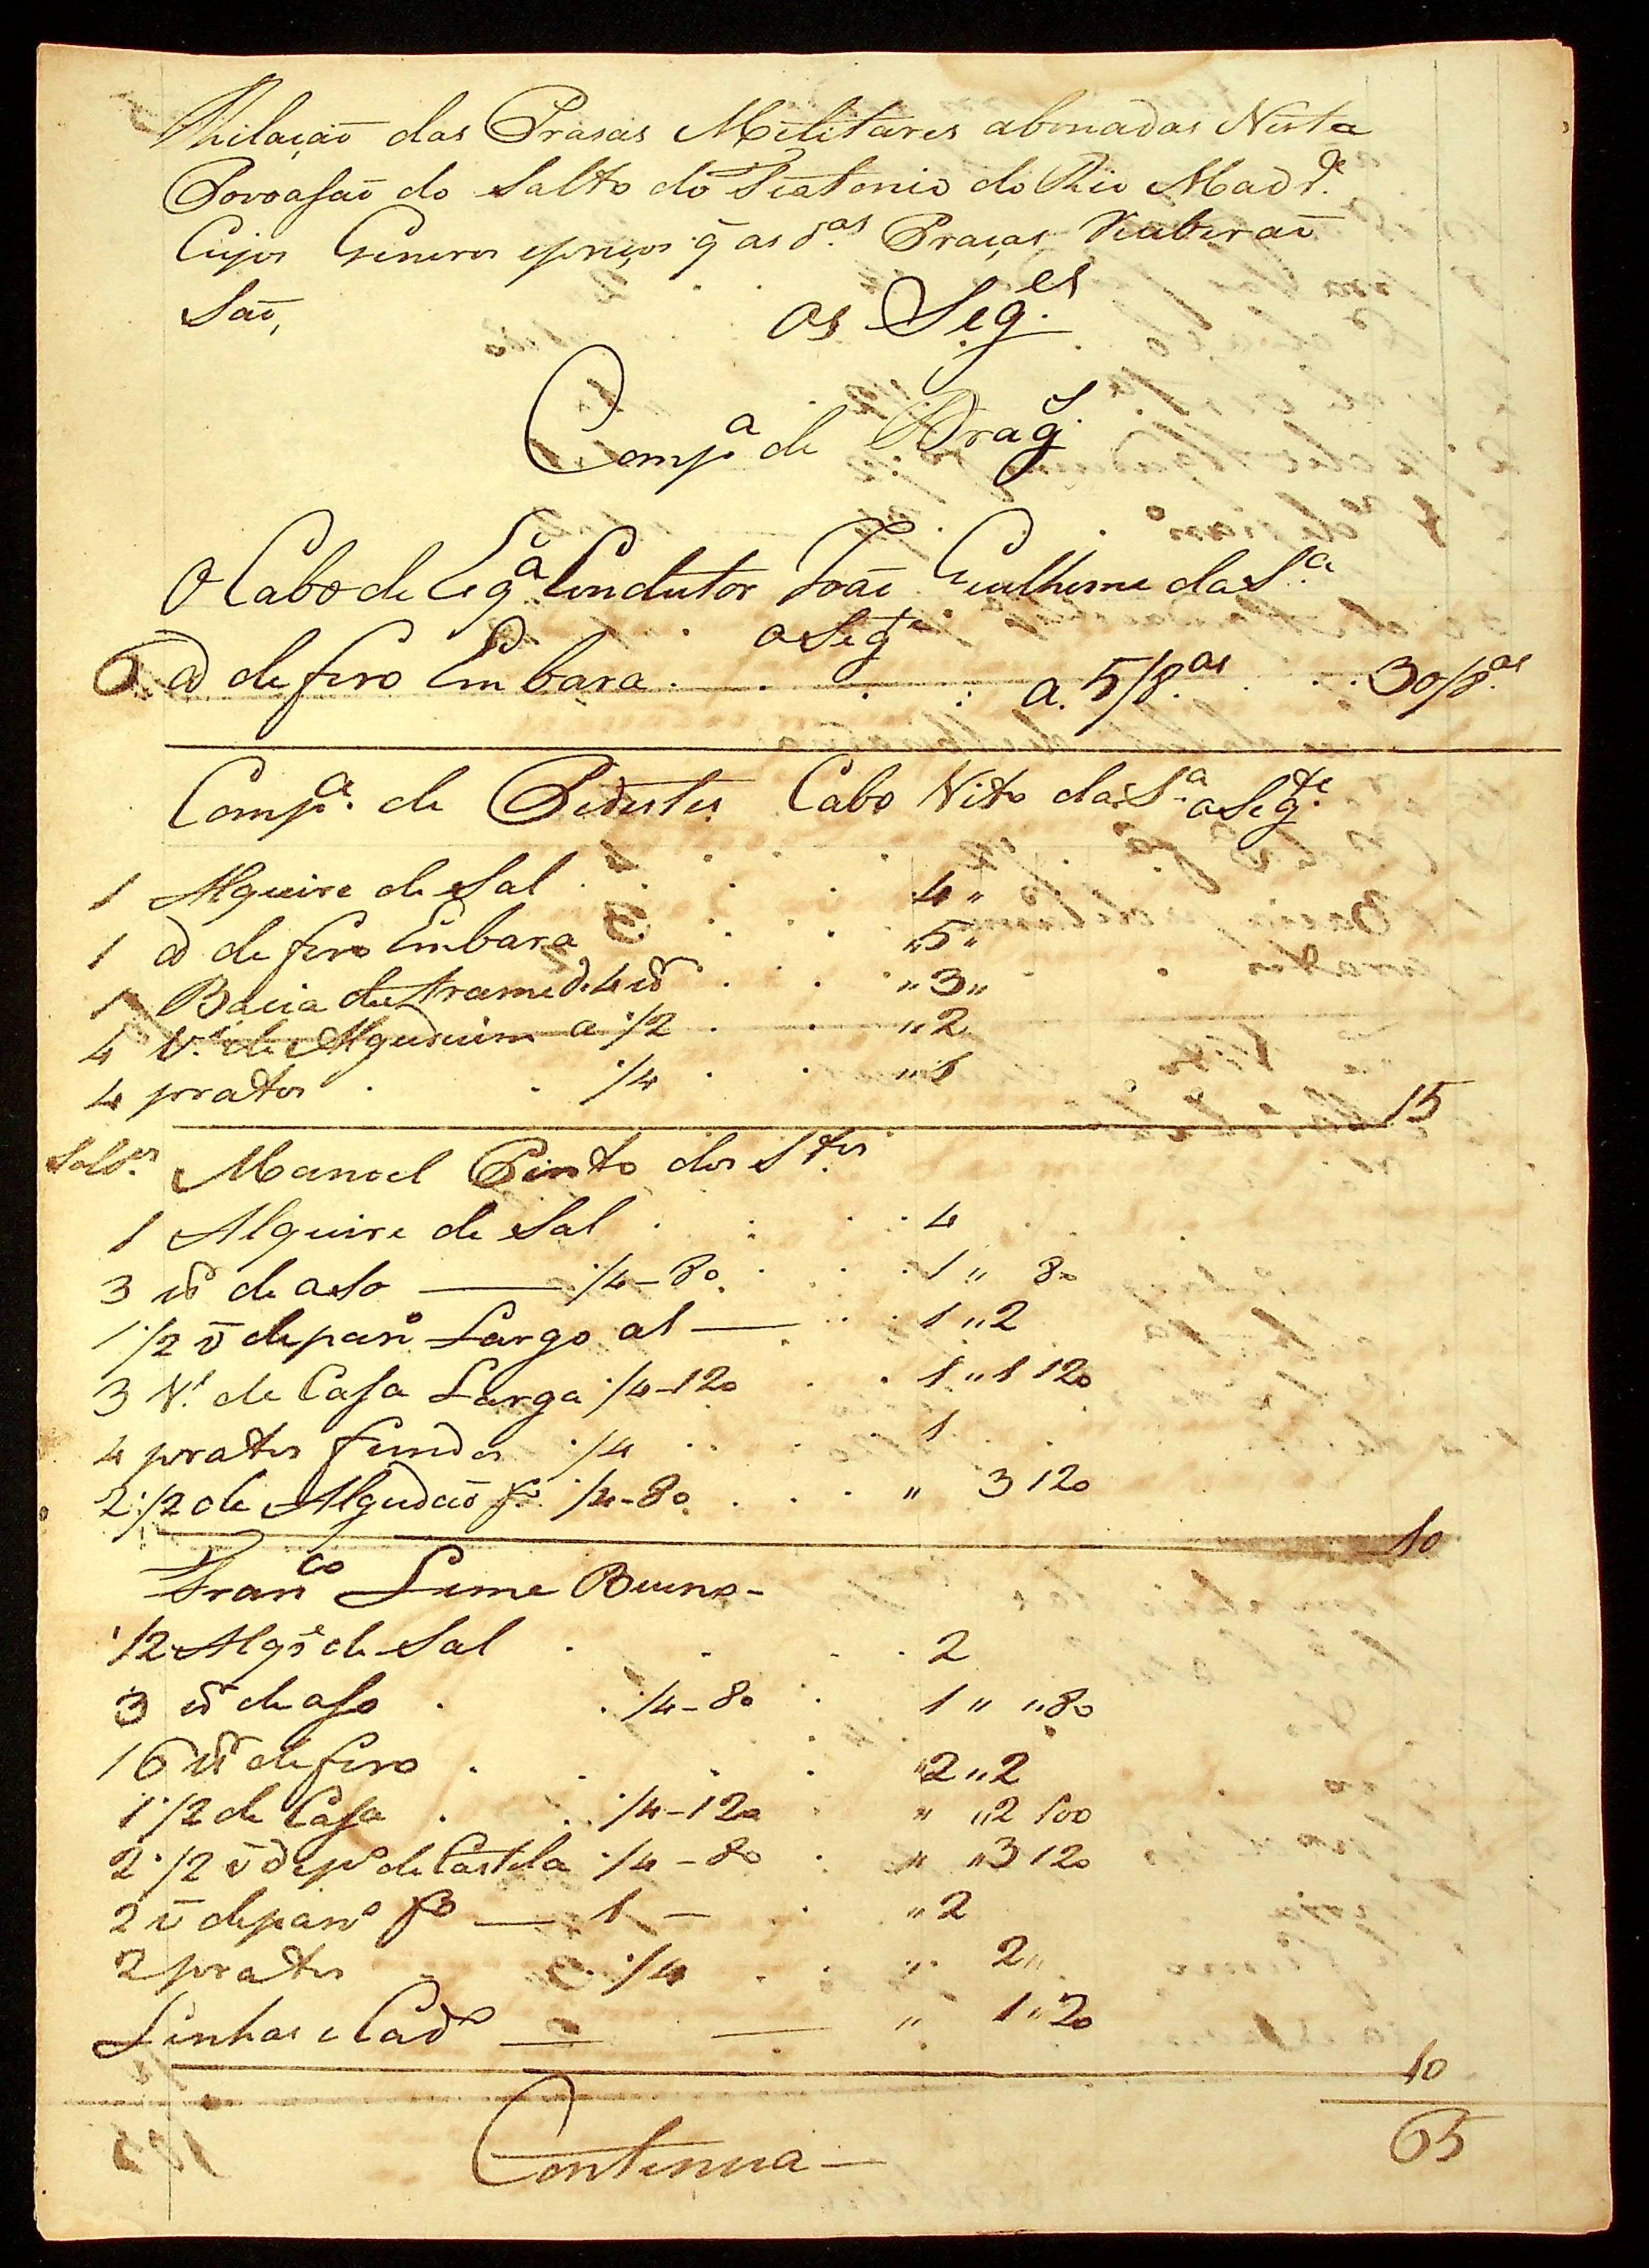 Rilação das Prasas Militares abonadas Nesta
Povoasaõ do Salto do Teatonio do Rio Mad.ª
Cujos Generos epreços q̃ as d.as Praças Receberaõ
Saõ, os Seg.es
Comp.a de Drag.s
O Cabo de Esq.a Condutor Joaõ Guilherme da S.a
o Seg.te
6 @ de fero Em bara . . . . a. 5/8.as . . 30/8.as
Comp.a de Pedestes Cabo Vito da S.a o Seg.te
1 Alqueire de Sal . . . . 4 "
1 @ de fero Em bara . . . " 5 "
1 Bacia de Arame d. 4 lb . . " 3 "
4 V.s de Alguduim a 1/2 . . " 2
4 pratos . . 1/4 . . " 1
15
Sold.os Manoel Pinto dos S.tos
1 Alqueire de Sal . . . . 4
3 lb de aso — 1/4-80 . . . 1 " 80
1 1/2 v̄ de pano Largo a 1 — . . 1 " 2
3 V.s de Casa Larga 1/4-120 . . 1 " 1 120
4 pratos fundos 1/4 . . . 1
2 1/2 de Algudaõ f.o 1/4-80 . . . " 3 120
10
Fran.co Leme Bueno -
1/2 Alq.e de Sal . . . . 2
3 lb de aso . . 1/4-80 . 1 " " 80
16 lb de fero . . . . " 2 " 2
1 1/2 de Casa . . 1/4-120 . " " 2 100
2 1/2 v̄ de p.o de Castela 1/4-80 . " " 3 120
2 v̄ de pano f.o — 1 — . " 2
2 pratos . 1/4 . . " 2 "
Linhas e Cad.o — — " 1 " 20
10
Continua — 65